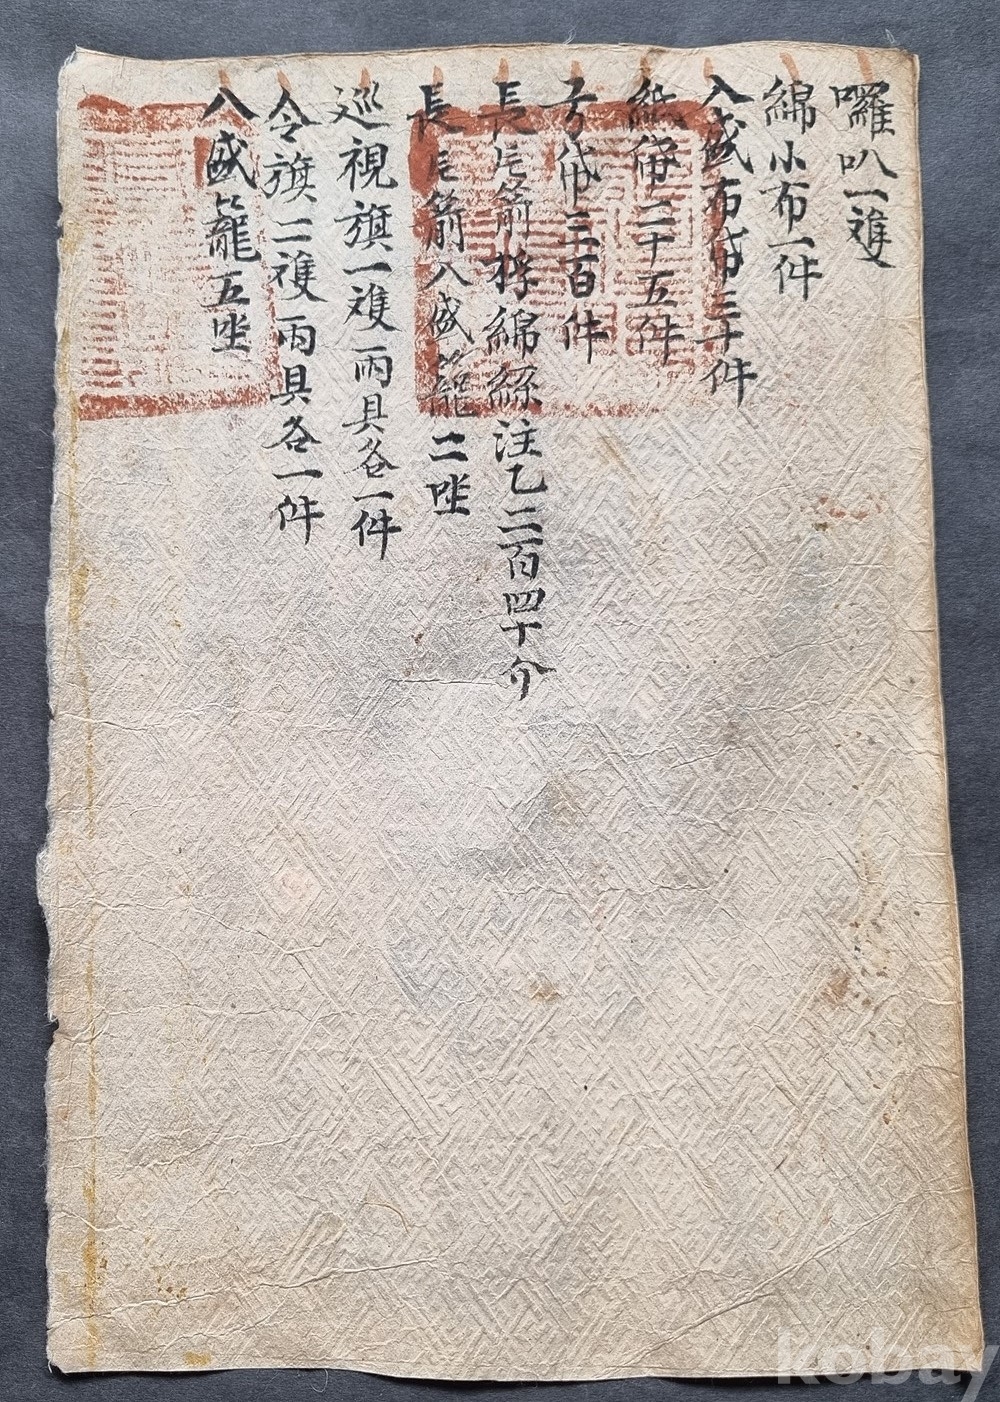 囉叭一雙
綿小布一件
入盛布帒三十件
紙帒二十五件
子帒三百件
長片箭桴綿絲注乙二百四十介
長片箭入盛籠二坐
巡視旗一雙雨具各一件
令旗二雙雨具各一件
入盛籠五坐
kobay